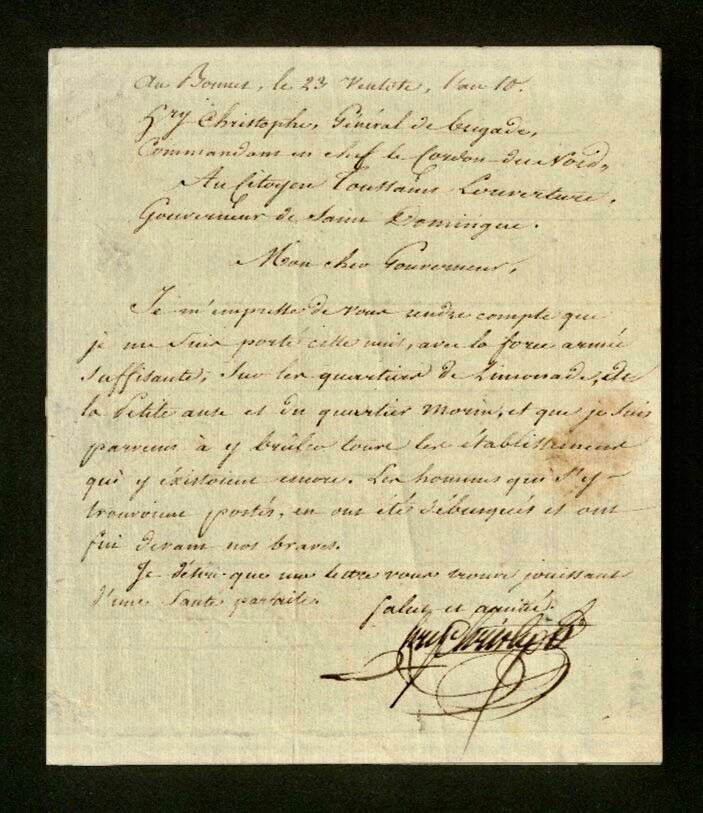 Au Bonnet, le 23 Ventose, l'an 10.
hry Christophe, Général de brigade,
Commandant en chef le Cordon du Nord,
Au Citoyen Toussaint Louverture,
Gouverneur de Saint Domingue.
Mon cher Gouverneur,
Je m'empresse de vous rendre compte que
je me suis porté cette nuit, avec la force armée
suffisante, sur les quartiers de Limonade, de
la Petite anse et du quartier morin, et que je suis
parvenu à y brûler tous les établissemens
qui y éxistoient encore. Les hommes qui s'y
trouvoient postés, en ont été débusqués et ont
fui devant nos braves.
Je désire que ma lettre vous trouve jouissant
d'une santé parfaite. Salut et amitié.
hry Christophe